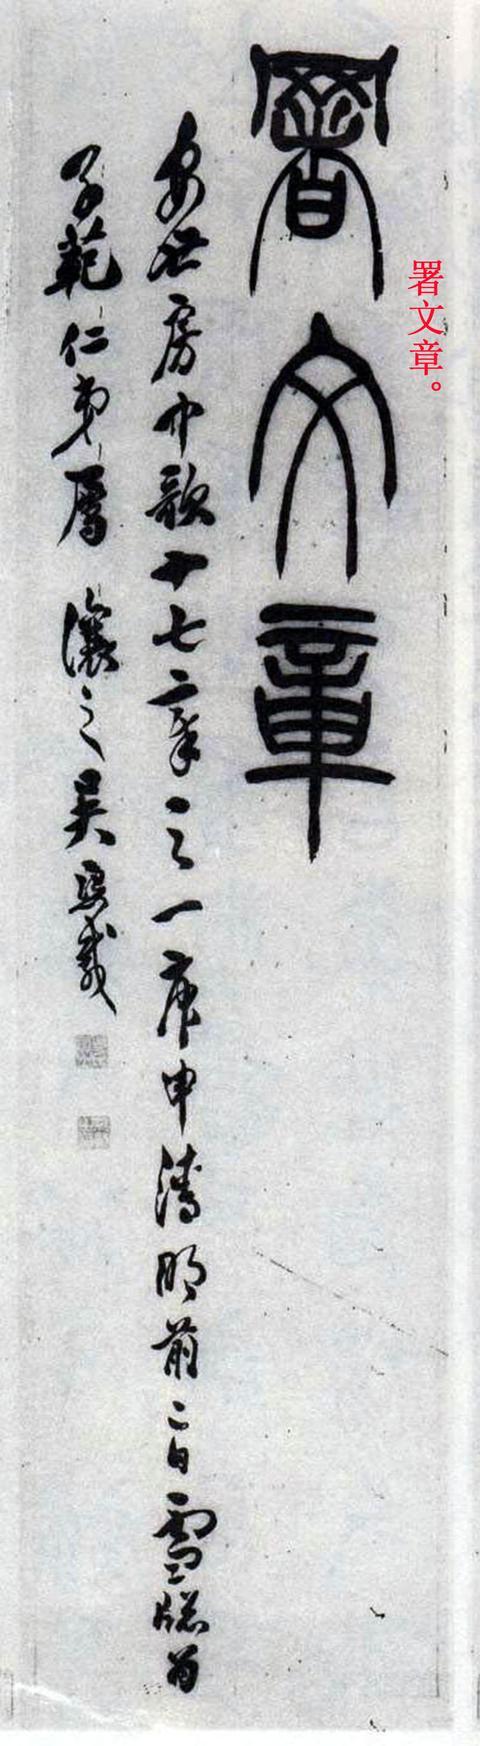 署文章。
署文章
安世房中歌十七章之一庚申清明前二日雪牕為
子範仁弟屬 讓之吴熙載